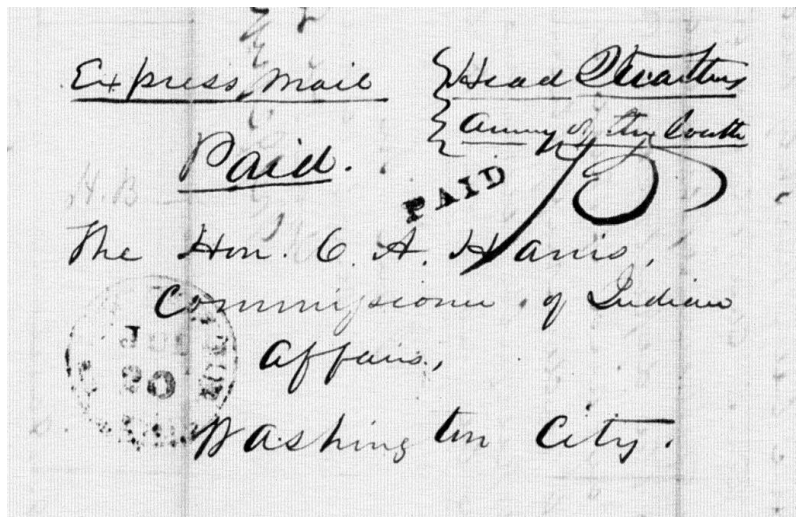 Express Mail
Head Quarters
Army of the South
Paid.
PAID
75
The Hon. C. A. Harris,
Commissioner of Indian
Affairs,
Washington City.
20